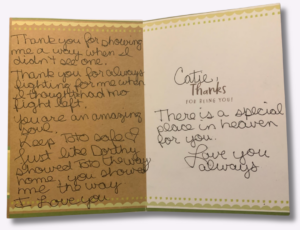 Thank you for showing
me a way when I
didn't see one.
Thank you for always
fighting for me when
I thought I had no
fight left.
You are an amazing
soul.
Keep Toto safe
Just like Dorthy
showed Toto the way
home, you showed
me the way
I Love you
Catie,
Thanks
FOR BEING YOU!
There is a special
place in heaven
for you.
Love you
always